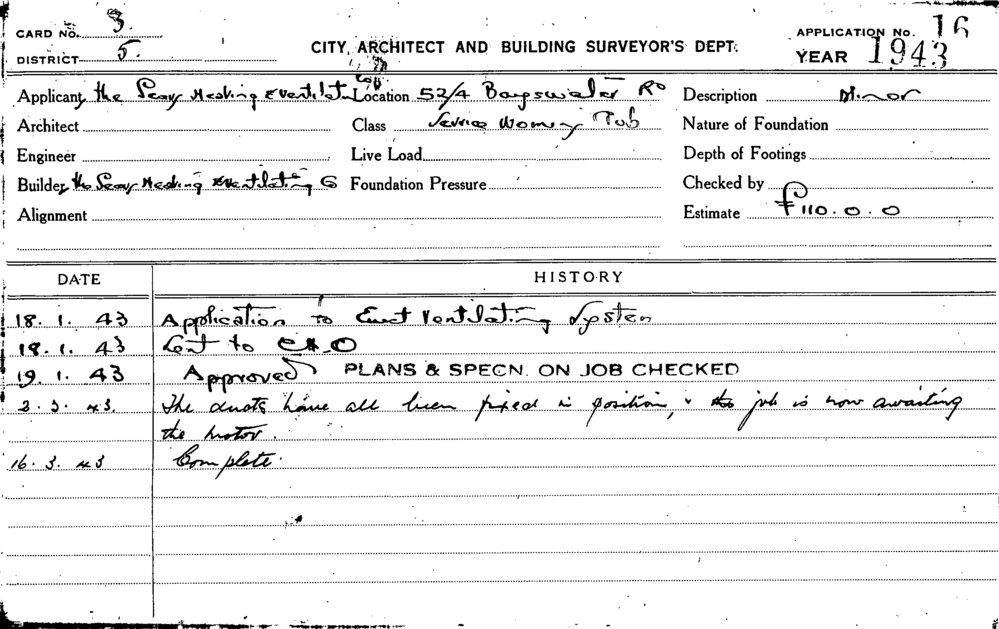 CARD NO. 3.
DISTRICT 5.
CITY ARCHITECT AND BUILDING SURVEYOR'S DEPT.
APPLICATION No. 16
YEAR 1943
Applicant the Heating & Ventilating Coy Location 52/4 Bayswater Rd Description Minor
Architect Class Service Women Nature of Foundation
Engineer Live Load Depth of Footings
Builder the Heating & Ventilating Co Foundation Pressure Checked by
Alignment Estimate £110.0.0
DATE HISTORY
18. 1. 43 Application to Erect Ventilating System
18. 1. 43 Sent to
19. 1. 43 Approved PLANS & SPECN. ON JOB CHECKED
2. 3. 43. The ducts have all been fixed in position, & the job is now awaiting
the motor.
16. 3. 43 Complete.